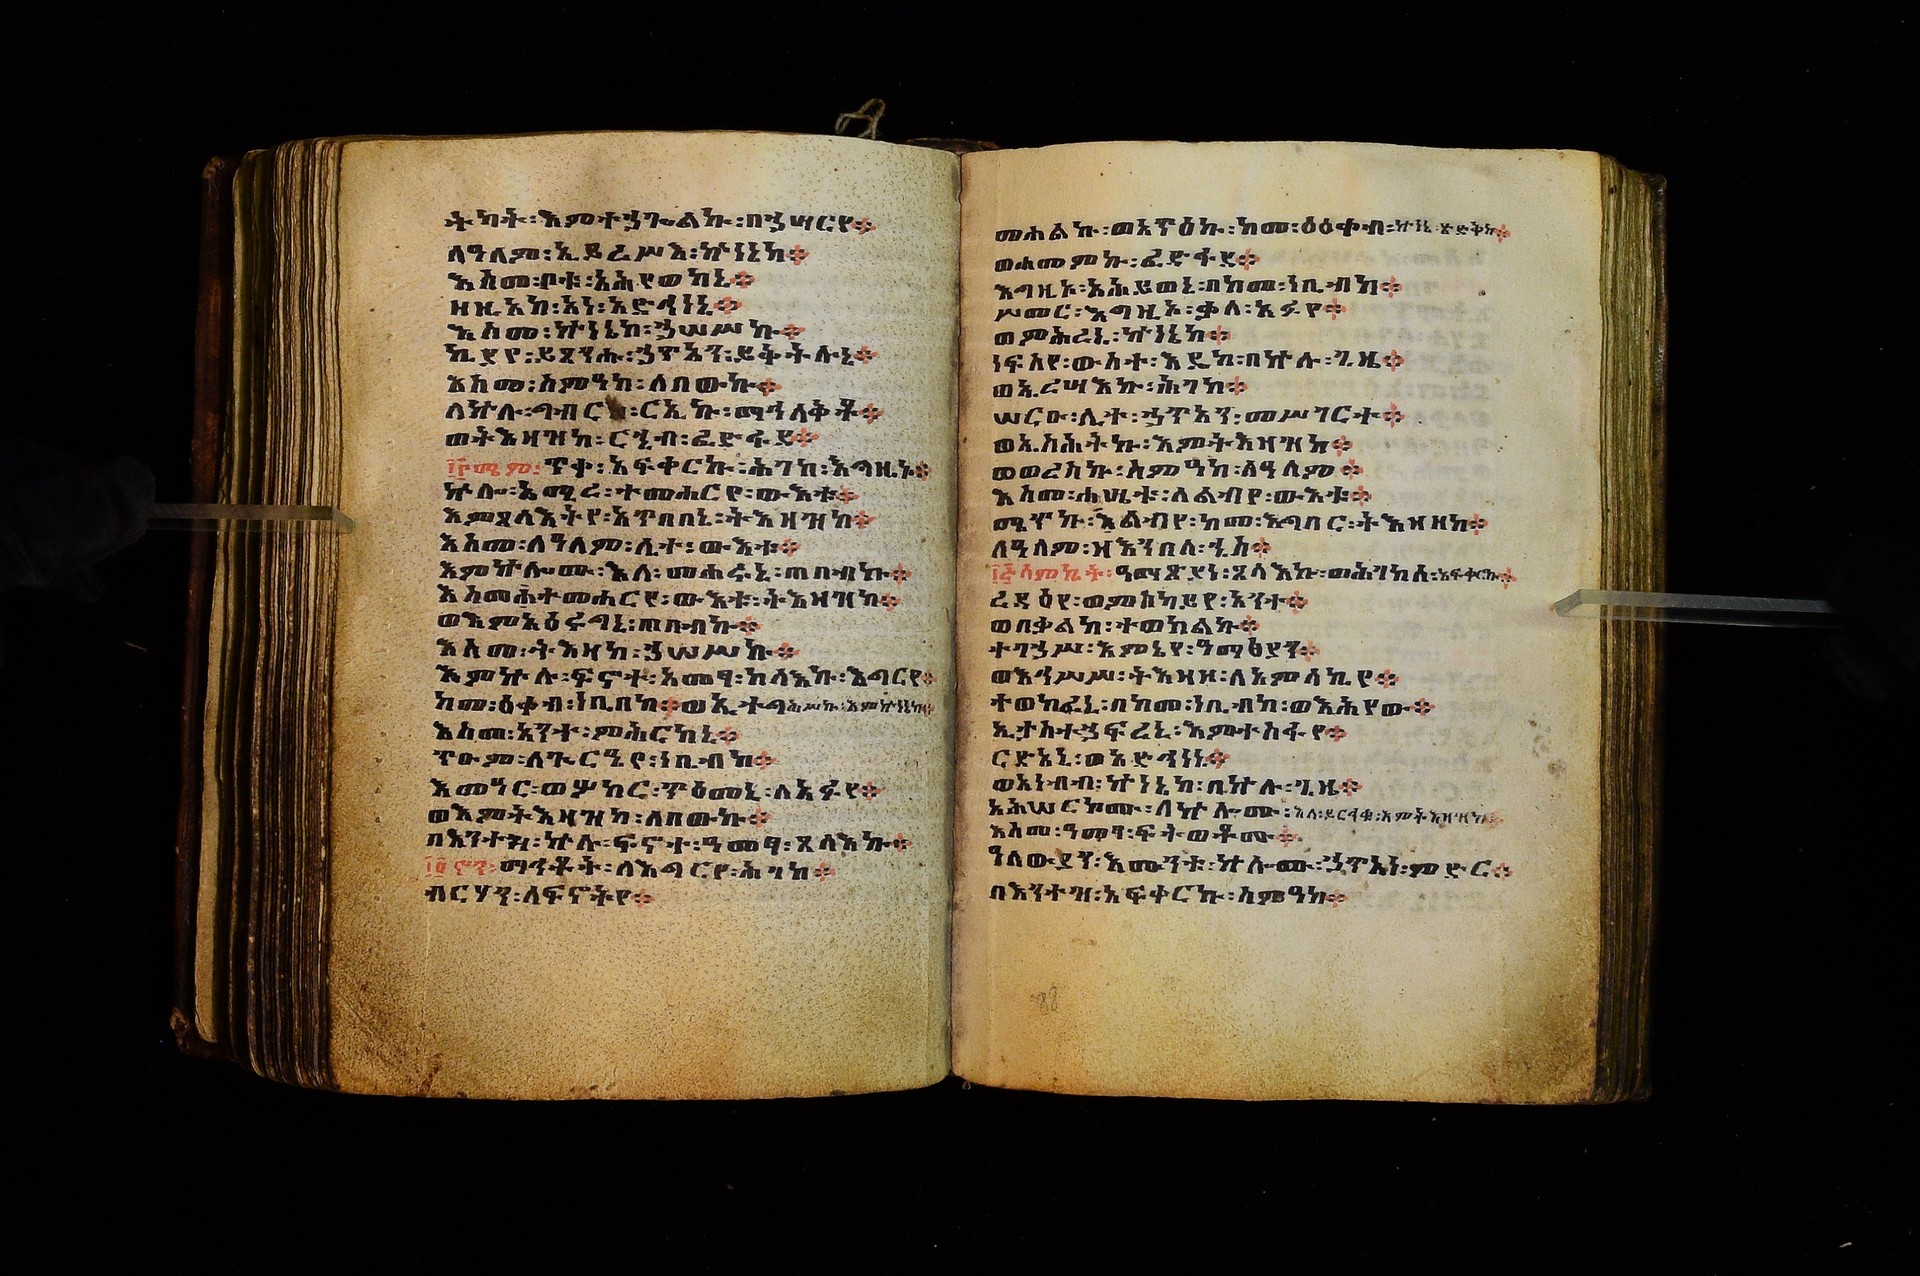 ትካት፡እምተኃጐልኩ፡በኃሣርየ።
ለዓለም፡ኢይረሥእ፡ኵነኔከ።
እስመ፡ቦቱ፡አሕየወከኒ።
ዘዚአከ፡አነ፡አድኅነኒ።
እስመ፡ኵነኔከ፡ኃሠሥኩ።
ኪያየ፡ይጸንሑ፡ኃጥአን፡ይቅትሉኒ።
እስመ፡ስምዓከ፡ለበውኩ።
ለኵሉ፡ግብር፡ርኢኩ፡ማኅለቅቶ።
ወትእዛዝከ፡ርኂብ፡ፈድፋደ።
፲፫ሜም፡ጥቀ፡አፍቀርኩ፡ሕገከ፡እግዚኦ።
ኵሎ፡አሚረ፡ተመሐርየ፡ውእቱ።
እምጸላእትየ፡አጥበበኒ፡ትእዛዝከ።
እስመ፡ለዓለም፡ሊተ፡ውእቱ።
እምኵሎሙ፡እለ፡መሐሩኒ፡ጠበብኩ።
እስመ፡ተመሐርየ፡ውእቱ፡ትእዛዝከ።
ወእምአዕሩግኒ፡ጠበብኩ።
እስመ፡ትእዛዘከ፡ኃሠሥኩ።
እምኵሉ፡ፍኖተ፡አመፃ፡ከላእኩ፡እግርየ።
ከመ፡ዕቀብ፡ነቢበከ።ወኢተግሕሥኩ፡እምኵነኔከ።
እስመ፡አንተ፡ምሕርከኒ።
ጥዑም፡ለጕርዔየ፡ነቢብከ።
እመዓር፡ወሦከር፡ጥዕመኒ፡ለአፉየ።
ወእምትእዛዝከ፡ለበውኩ።
በእንተዝ፡ኵሉ፡ፍኖተ፡ዓመፃ፡ጸላእኩ።
፲፬ኖን፡ማኅቶት፡ለእግርየ፡ሕግከ።
ብርሃን፡ለፍኖትየ።
መሐልኩ፡ወአጥዕኩ፡ከመ፡ዕዕቀብ፡ኵነኔ፡ጽድቅከ።
ወሐመምኩ፡ፈድፋደ።
እግዚኦ፡አሕይወኒ፡በከመ፡ነቢብከ።
ሥመር፡እግዚኦ፡ቃለ፡አፉየ።
ወምሕረኒ፡ኵነኔከ።
ነፍስየ፡ውስተ፡እዴከ፡በኵሉ፡ጊዜ።
ወኢረሣእኩ፡ሕገከ።
ሠርዑ፡ሊተ፡ኃጥአን፡መሥገርተ።
ወኢስሕትኩ፡እምትእዛዝከ።
ወወረስኩ፡ስምዓከ፡ለዓለም።
እስመ፡ሐሤቱ፡ለልብየ፡ውእቱ።
ሜጥኩ፡እልብየ፡ከመ፡እግበር፡ትእዛዘከ።
ለዓለም፡ዘእንበለ፡ኂስ።
፲፭ሳምኬት፡ዓማጽያነ፡ጸላእኩ፡ወሕገከሰ፡አፍቀርኩ።
ረዳዕየ፡ወምስካይየ፡አንተ።
ወበቃልከ፡ተወከልኩ።
ተገኃሡ፡እምኔየ፡ዓማፅያን።
ወእኅሥሥ፡ትእዛዘ፡ለአምላኪየ።
ተወከፈኒ፡በከመ፡ነቢብከ፡ወእሕየው።
ኢታስተኃፍረኒ፡እምተስፋየ።
ርድአኒ፡ወአድኅነኒ።
ወአነብብ፡ኵነኔከ፡በኵሉ፡ጊዜ።
አሕሠርኮሙ፡ለኵሎሙ፡እለ፡ይርኅቁ፡እምትእዛዝከ።
እስመ፡ዓመፃ፡ፍትወቶሙ።
ዓለውያን፡እሙንቱ፡ኵሎሙ፡ኃጥኣነ፡ምድር።
በእንተዝ፡አፍቀርኩ፡ስምዓከ።
88